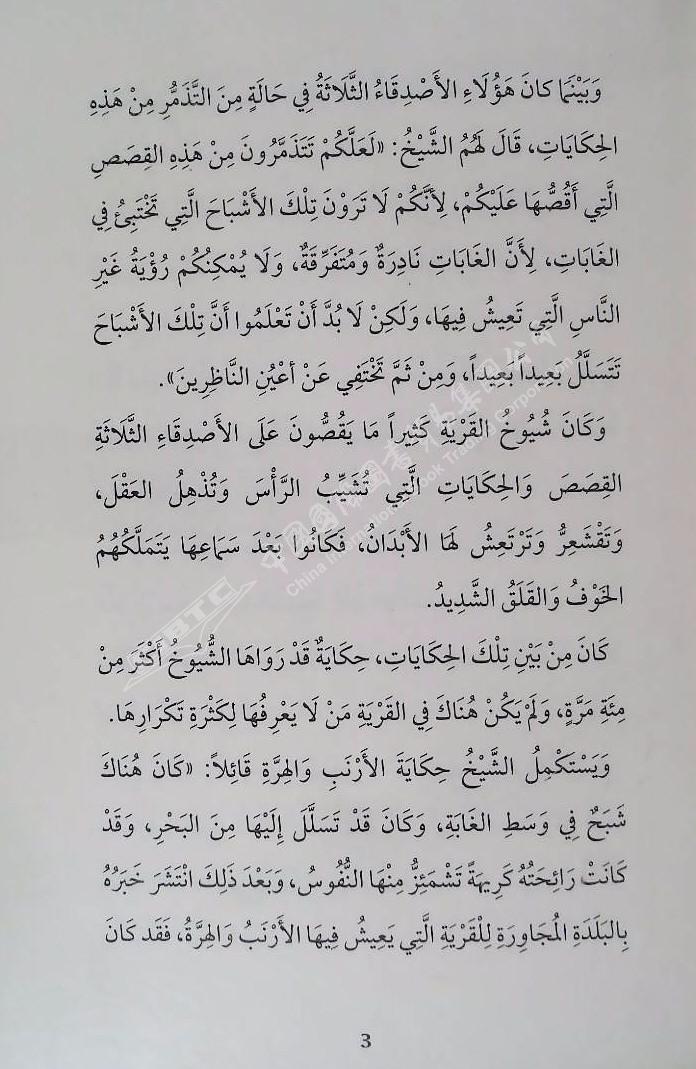 وَبَيْنَمَا كانَ هَؤُلَاءِ الأَصْدِقَاءُ الثَّلَاثَةُ فِي حَالَةٍ مِنَ التَّذَمُّرِ مِنْ هَذِهِ
الحِكَايَاتِ، قَالَ لَهُمُ الشَّيْخُ: «لَعَلَّكُمْ تَتَذَمَّرُونَ مِنْ هَذِهِ القِصَصِ
الَّتِي أَقُصُّهَا عَلَيْكُمْ، لِأَنَّكُمْ لَا تَرَوْنَ تِلْكَ الأَشْبَاحَ الَّتِي تَخْتَبِئُ فِي
الغَابَاتِ، لِأَنَّ الغَابَاتِ نَادِرَةٌ وَمُتَفَرِّقَةٌ، وَلَا يُمْكِنُكُمْ رُؤْيَةُ غَيْرِ
النَّاسِ الَّتِي تَعِيشُ فِيهَا، وَلَكِنْ لَا بُدَّ أَنْ تَعْلَمُوا أَنَّ تِلْكَ الأَشْبَاحَ
تَتَسَلَّلُ بَعِيداً بَعِيداً، وَمِنْ ثَمَّ تَخْتَفِي عَنْ أَعْيُنِ النَّاظِرِينَ».
وَكَانَ شُيُوخُ القَرْيَةِ كَثِيراً مَا يَقُصُّونَ عَلَى الأَصْدِقَاءِ الثَّلَاثَةِ
القِصَصَ وَالحِكَايَاتِ الَّتِي تُشَيِّبُ الرَّأْسَ وَتُذْهِلُ العَقْلَ،
وَتَقْشَعِرُّ وَتَرْتَعِشُ لَهَا الأَبْدَانُ، فَكَانُوا بَعْدَ سَمَاعِهَا يَتَمَلَّكُهُمُ
الخَوْفُ وَالقَلَقُ الشَّدِيدُ.
كَانَ مِنْ بَيْنِ تِلْكَ الحِكَايَاتِ، حِكَايَةٌ قَدْ رَوَاهَا الشُّيُوخُ أَكْثَرَ مِنْ
مِئَةِ مَرَّةٍ، وَلَمْ يَكُنْ هُنَاكَ فِي القَرْيَةِ مَنْ لَا يَعْرِفُهَا لِكَثْرَةِ تَكْرَارِهَا.
وَيَسْتَكْمِلُ الشَّيْخُ حِكَايَةَ الأَرْنَبِ وَالهِرَّةِ قَائِلاً: «كَانَ هُنَاكَ
شَبَحٌ فِي وَسَطِ الغَابَةِ، وَكَانَ قَدْ تَسَلَّلَ إِلَيْهَا مِنَ البَحْرِ، وَقَدْ
كَانَتْ رَائِحَتُهُ كَرِيهَةً تَشْمَئِزُّ مِنْهَا النُّفُوسُ، وَبَعْدَ ذَلِكَ انْتَشَرَ خَبَرُهُ
بِالبَلَدَةِ المُجَاوِرَةِ لِلْقَرْيَةِ الَّتِي يَعِيشُ فِيهَا الأَرْنَبُ وَالهِرَّةُ، فَقَد كَانَ
3
中国国际图书贸易集团公司
China International Book Trading Corporation